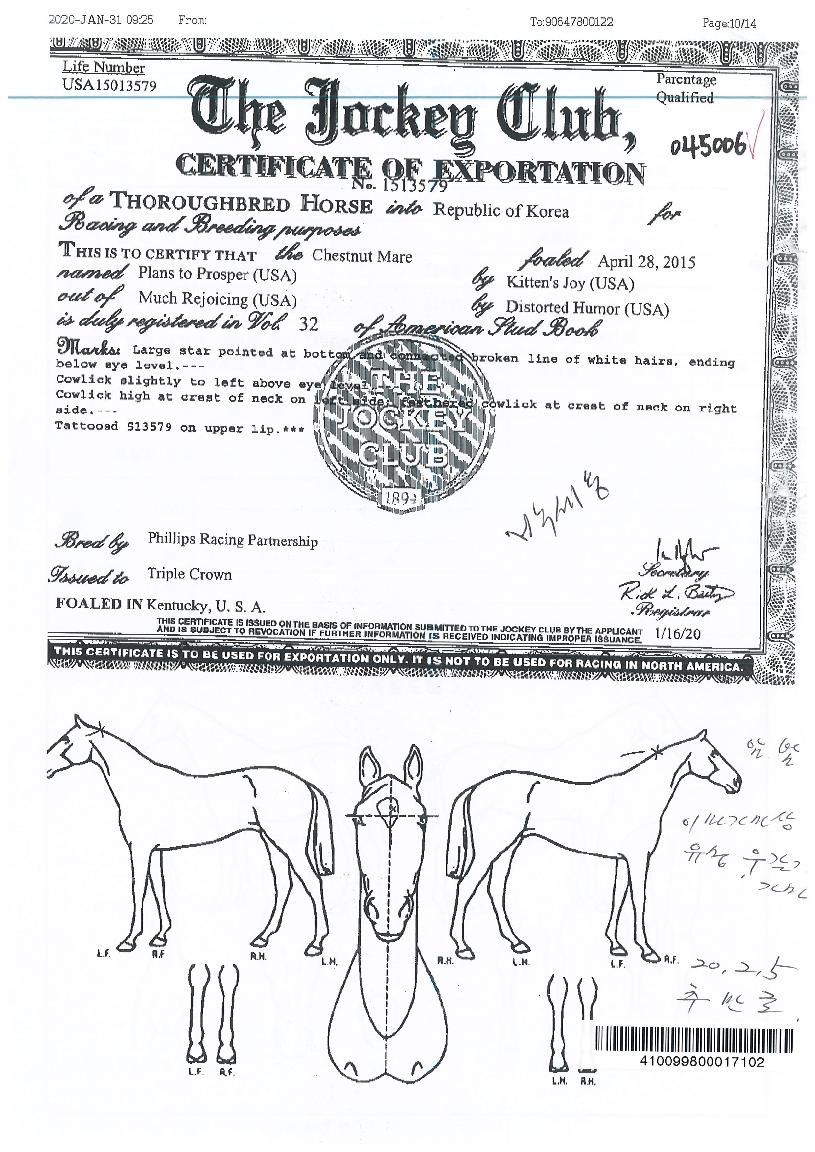 2020-JAN-31 09:25 From: To:90647800122 Page:10/14
Life Number
USA15013579
Parentage
Qualified
The Jockey Club,
045006
CERTIFICATE OF EXPORTATION
No. 1513579
of a THOROUGHBRED HORSE into Republic of Korea for
Racing and Breeding purposes
THIS IS TO CERTIFY THAT the Chestnut Mare foaled April 28, 2015
named Plans to Prosper (USA) by Kitten's Joy (USA)
out of Much Rejoicing (USA) by Distorted Humor (USA)
is duly registered in Vol. 32 of American Stud Book
Marks: Large star pointed at bottom and connected broken line of white hairs, ending
below eye level.---
Cowlick slightly to left above eye level.---
Cowlick high at crest of neck on left side; feathered cowlick at crest of neck on right
side.---
Tattooed S13579 on upper lip.***
THE
JOCKEY
CLUB
1894
Bred by Phillips Racing Partnership
Secretary
Issued to Triple Crown
Registrar
FOALED IN Kentucky, U. S. A.
THIS CERTIFICATE IS ISSUED ON THE BASIS OF INFORMATION SUBMITTED TO THE JOCKEY CLUB BY THE APPLICANT
AND IS SUBJECT TO REVOCATION IF FURTHER INFORMATION IS RECEIVED INDICATING IMPROPER ISSUANCE. 1/16/20
THIS CERTIFICATE IS TO BE USED FOR EXPORTATION ONLY. IT IS NOT TO BE USED FOR RACING IN NORTH AMERICA.
L.F. R.F R.H. L.H. R.H. L.H. L.F. R.F.
20, 2, 5
L.F. R.F. L.H. R.H.
410099800017102